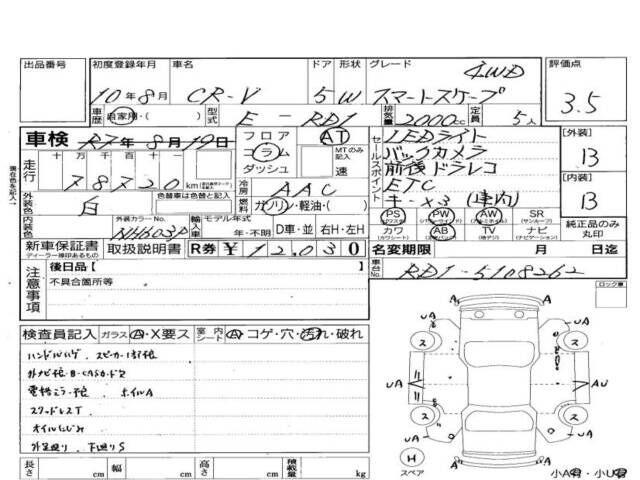 出品番号 初度登録年月 車名 ドア 形状 グレード 評価点
10年8月 CR-V 5W スマートスケープ 4WD 3.5
車歴 自家用・( ) 型式 E-RD1 排気量 2000cc 定員 5人
車検 R7年8月19日 フロア コラム ダッシュ AT MTのみ記入 速
走行 十万 万 千 百 十 一 78720km
冷房 AAC
燃料 ガソリン・軽油・( )
セールスポイント
LEDライト
バックカメラ
前後ドラレコ
ETC
キー×3(車内)
[外装] 13
[内装] 13
外装色 白 色替車は色替と記入
内装色 外装カラーNo. NH603P 輸入車 モデル年式 年・不明 D車・並 右H・左H
PS PW AW SR
カワ AB TV ナビ
純正品のみ丸印
新車保証書 取扱説明書 R券 ¥12,030
ディーラー捺印あるもの
名変期限 月 日迄
車台No. RD1-5108262
注意事項 後日品[ ]
不具合箇所等
ロック車
検査員記入 ガラス A・X要ス 室内シート A・コゲ・穴・汚れ・破れ
電格ミラー不良 ホイルA
スタッドレスT
オイルにじみ
下廻りS
A A
UA UA
ス ス
UA AU
ス ス
A A
UA A
H
スペア
長さ cm 幅 cm 高さ cm 積載量 kg
小A有・小U有